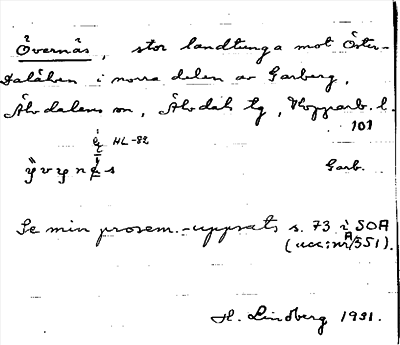 Övernäs, stor landtunga mot Öster-
dalälven i norra delen av Garberg,
Älvdalens sn, Älvdals tg, Kopparb. l.
101
HL-82
Garb.
Se min prosem.-uppsats s. 73 i SOA
(acc:nr 551).
H. Lindberg 1931.